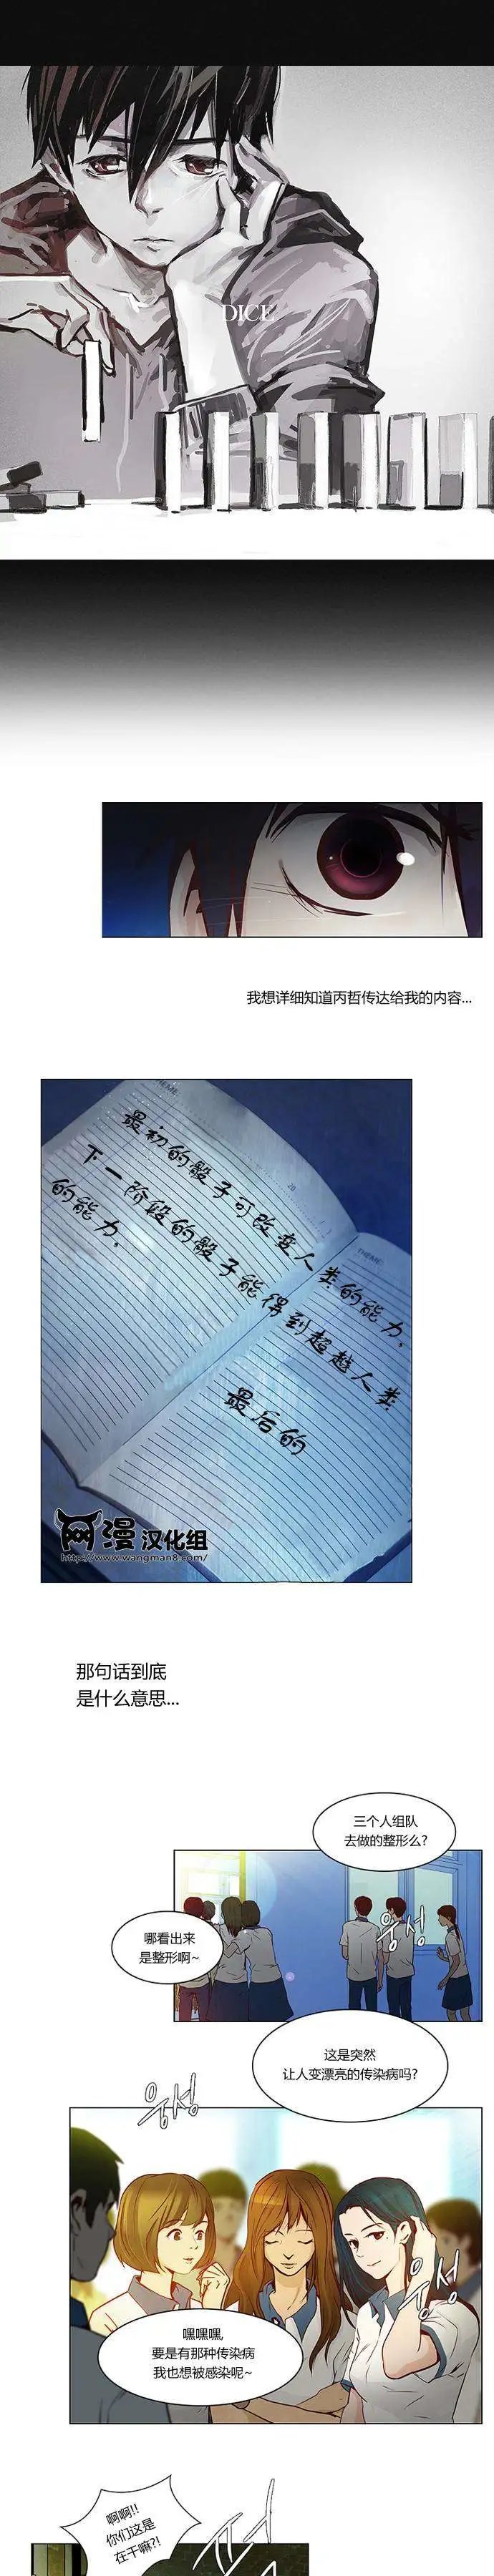 DICE
我想详细知道丙哲传达给我的内容...
THEME:
20
THEME:
最初的骰子可改变人类的能力,
下一阶段的骰子能得到超越人类
的能力,
最后的
网漫汉化组
http://www.wangman8.com/
那句话到底
是什么意思...
三个人组队
去做的整形么?
웅성
哪看出来
是整形啊~
这是突然
让人变漂亮的传染病吗?
웅성
웅성
嘿嘿嘿,
要是有那种传染病
我也想被感染呢~
啊啊!!
你们这是
在干嘛?!